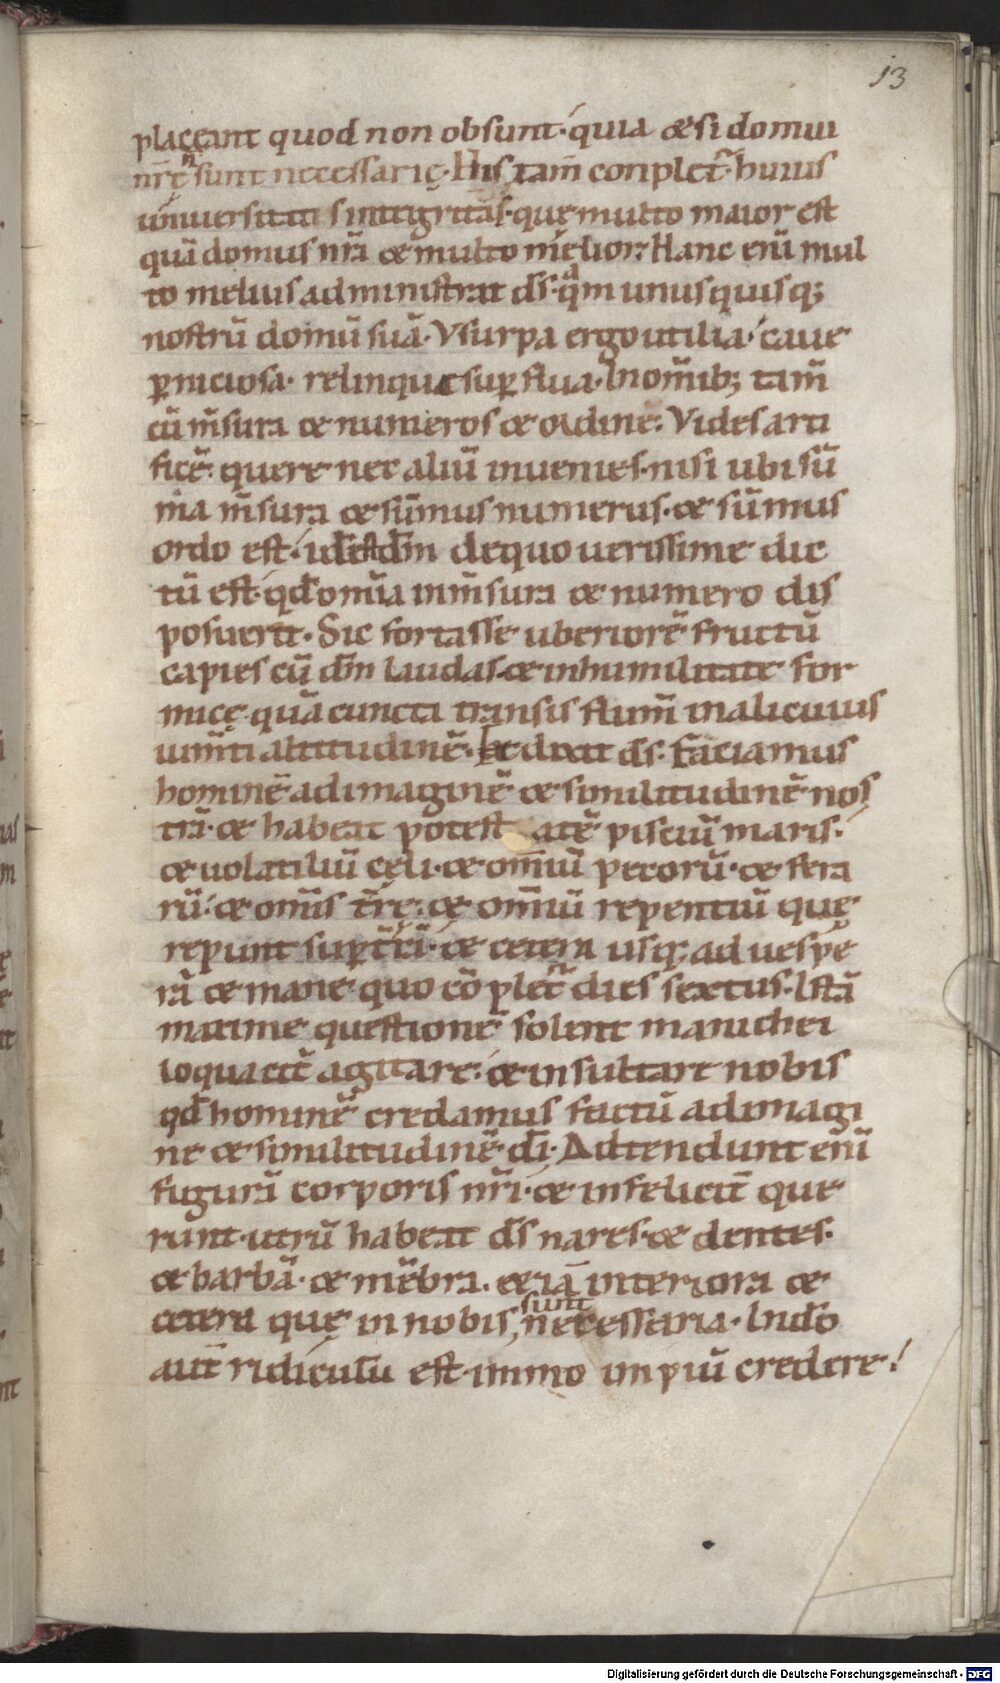 13
placeant quod non obsunt· quia & si domui
nr̄ę n̄ sunt necessarię· His tam̄ conplet᷑· huius
uniuersitatis integritas· quę multo maior est
quā domus nr̄a & multo melior; Hanc enī mul
to melius administrat d̄s· q̄m unusquisq;
nostrū domū suā· Vsurpa ergo utilia· caue
ꝑniciosa· relinque suꝑflua· In om̄ib; tam̄
cū m̄sura & numeros & ordinē. Vides arti
ficē· quere nec aliū inuenies· nisi ubi sū
ma m̄sura & sūmus numerus· & sūmus
ordo est· id est d̄m de quo uerissime dic
tū est· qd̄ om̄ia in m̄sura & numero dis
posuerit· Sic fortasse uberiorē fructū
capies cū d̄m laudas & in humilitate for
micę· quā cuncta transis flum̄ in alicuius
ium̄ti altitudinē· Et dixit d̄s· Faciamus
hominē ad imaginē & similitudinē nos
trā· & habeat potestatē pisciū maris·
& uolatiliū cęli· & om̄iū pecorū· & fera
rū· & om̄is t̄rę· & om̄iū repentiū quę
repunt suꝑ t̄rā· & cetera usq; ad uespe
rā & mane quo cōplet᷑ dies sextus· Istā
maxime questionē solent manichei
loquacit̄ agitare· & insultare nobis
qd̄ hominē credamus factū ad imagi
nē & similitudinē d̄i· Adtendunt enī
figurā corporis nr̄i· & infelicit̄ que
runt· utrū habeat d̄s nares· & dentes·
& barbā· & mēbra· & iā interiora &
cetera quę in nobis sunt necessaria· In d̄o
aut̄ ridiculū est· immo impiū credere·
Digitalisierung gefördert durch die Deutsche Forschungsgemeinschaft - DFG